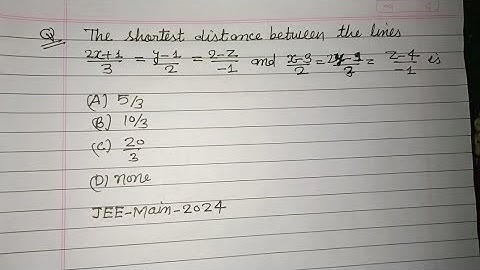 Q. The shortest distance between the lines
(2x+1)/3 = (y-1)/2 = (2-z)/-1 and (x-3)/2 = (2y-1)/3 = (z-4)/-1 is
(A) 5/3
(B) 10/3
(C) 20/3
(D) none
JEE-Main-2024